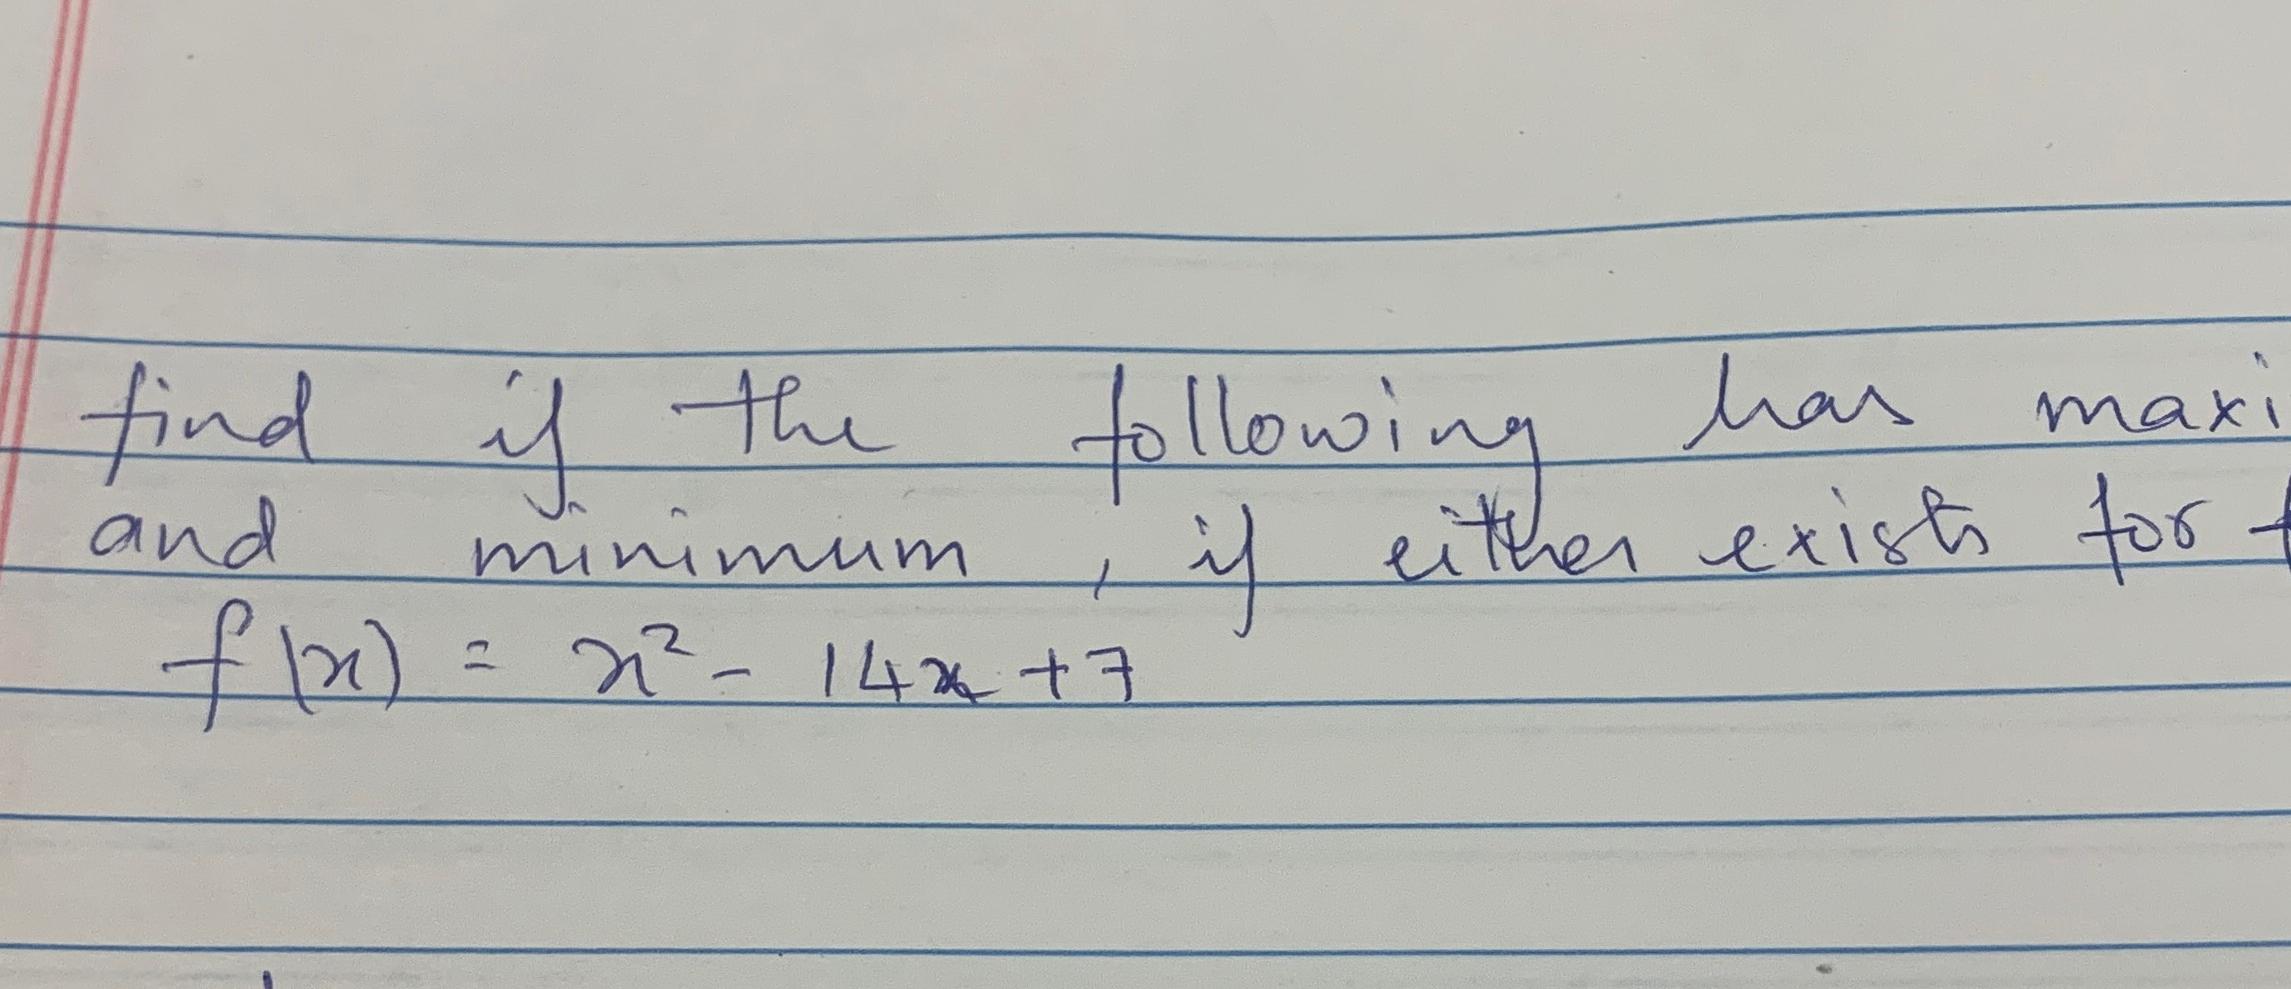 find if the following has maxi
and minimum, if either exists for f
f(x) = x² - 14x + 7